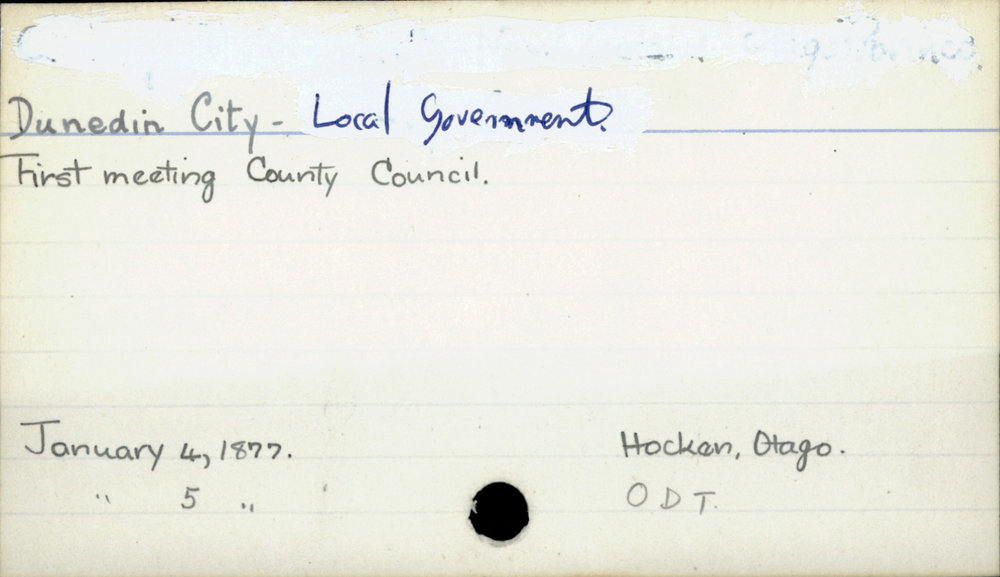 Dunedin City - Local Government.
First meeting County Council.
January 4, 1877. Hocken, Otago.
" 5 " O D T.